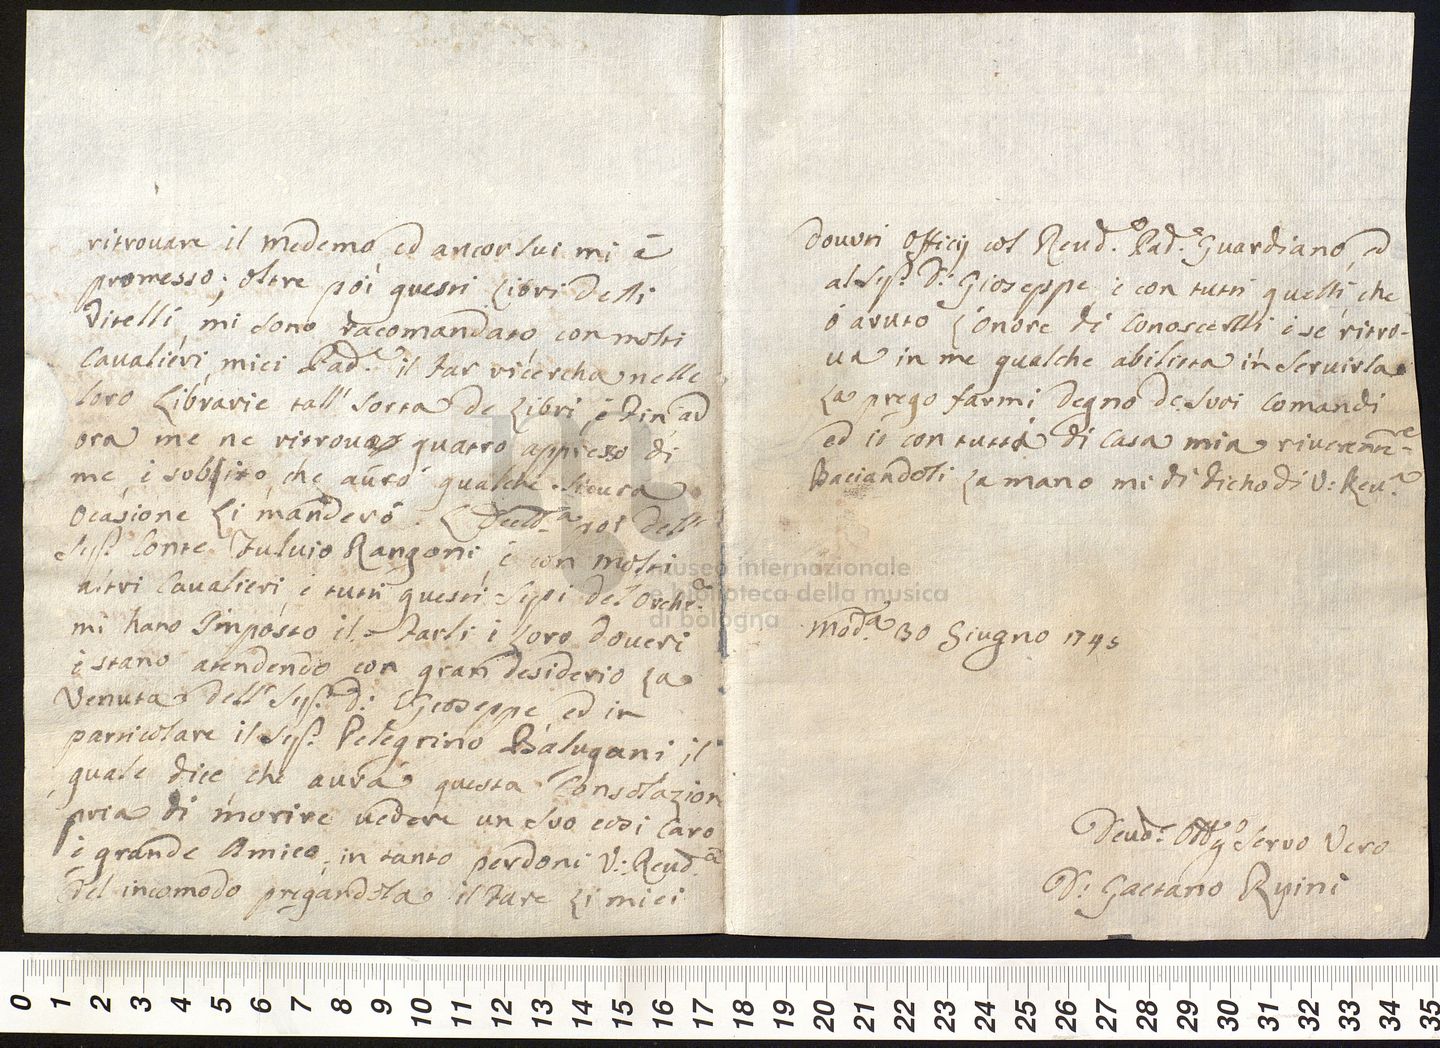 ritrouare il medemo, ed ancor lui mi é
promesso; oltre poi questi Libri detti
Vitelli, mi sono racomandato con molti
Cavalieri, miei Pad.ⁱ il far ricercha nelle
loro Librarie tall' sorta de Libri, é fin ad
ora me ne ritrouo quatro appresso di
me, i subbito, che auró qualche sicura
Ocasione Li manderó.
Sig.ʳ Conte Fuluio Rangoni, é con molti
altri Cavalieri é tutti questi Sig.ʳⁱ del Orch.ᵃ
mi hano Imposto il farli i loro doueri
i stano atendendo con gran desiderio La
Venuta dell' Sig.ʳ D: Gioseppe, ed in
particolare il Sig.ʳ Pelegrino Balugani il
quale dice, che aurá questa Consolazion
pria di morire uedere un suo cosi Caro
i grande Amico, in tanto perdoni V: Reud.ᵃ
del incomodo pregandola il fare Li miei
douuti Officij col Reud.º Pad.ᵉ Guardiano, ed
al Sig.ʳ D: Gioseppe, é con tutti quelli, che
ó avuto L'onore di Conoscerlli é se ritro-
ua in me qualche abilitta in Seruirla
La prego farmi degno de suoi Comandi
ed io con tutta di Casa mia riueramᵗᵉ=
Baciandoli La mano mi di dicho di V: Reu.ᵃ
Mod.ᵃ 30 Giugno 1745
Deud.º Obbg.º Seruo Vero
D: Gaetano Ruini
museo internazionale
e biblioteca della musica
di bologna
0 1 2 3 4 5 6 7 8 9 10 11 12 13 14 15 16 17 18 19 20 21 22 23 24 25 26 27 28 29 30 31 32 33 34 35